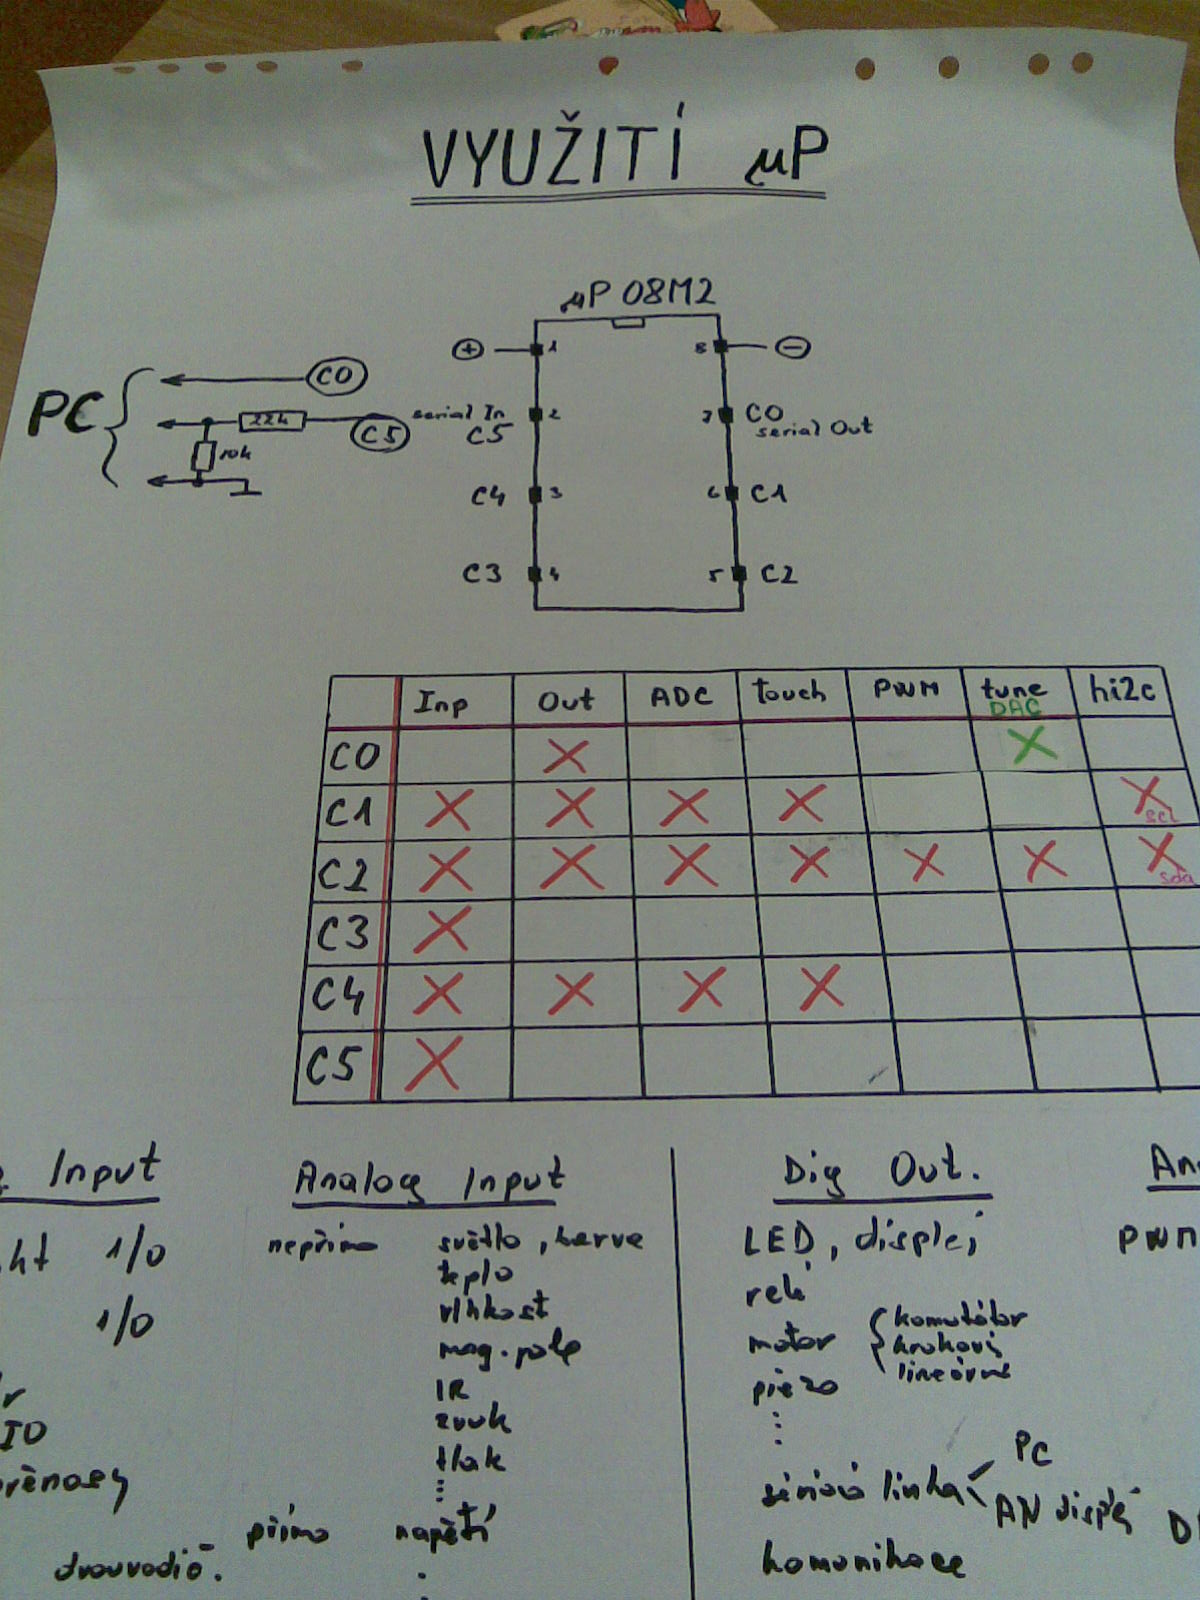 VYUŽITÍ µP
µP 08M2
⊕ 1 8 ⊖
PC C0
22k C5
10k
serial In C5 2 7 C0 serial Out
C4 3 6 C1
C3 4 5 C2
Inp Out ADC touch PWM tune DAC hi2c
C0 X X
C1 X X X X X scl
C2 X X X X X X X sda
C3 X
C4 X X X X
C5 X
Input
1/0
1/0
IO
dvouvodič.
Analog Input
nepřímo světlo, barve
teplo
vlhkost
mag. pole
IR
zvuk
tlak
přímo napětí
Dig Out.
LED, displej
relé
motor komutátor
krokový
lineární
piezo
sériová linka PC
AN disple
komunikace
PWM